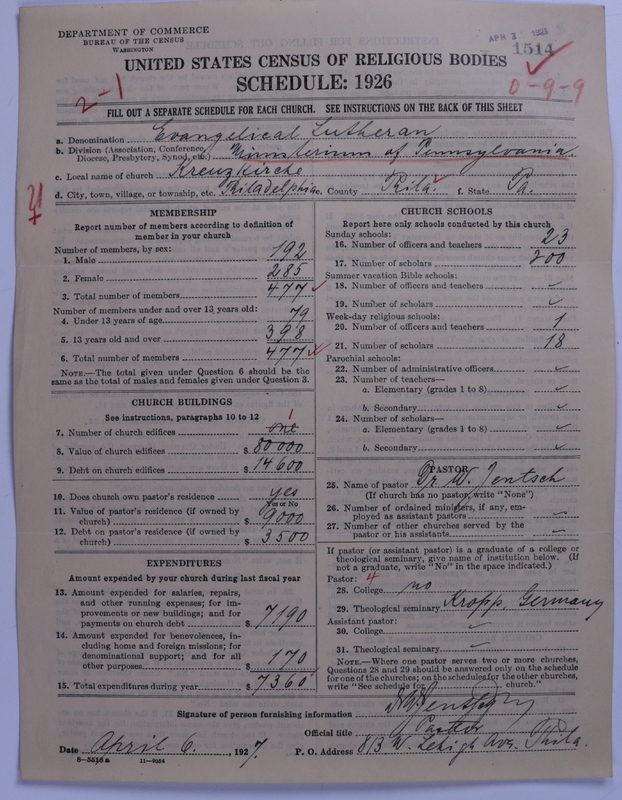 DEPARTMENT OF COMMERCE
BUREAU OF THE CENSUS
WASHINGTON
APR 2 1927
1514
UNITED STATES CENSUS OF RELIGIOUS BODIES
SCHEDULE: 1926
2-1
0-9-9
FILL OUT A SEPARATE SCHEDULE FOR EACH CHURCH. SEE INSTRUCTIONS ON THE BACK OF THIS SHEET
a. Denomination Evangelical Lutheran
b. Division (Association, Conference, Diocese, Presbytery, Synod, etc.) Ministerium of Pennsylvania.
c. Local name of church Kreuzkirche
d. City, town, village, or township, etc. Philadelphia e. County Phila. f. State Pa.
MEMBERSHIP
Report number of members according to definition of
member in your church
Number of members, by sex:
1. Male 192
2. Female 285
3. Total number of members 477
Number of members under and over 13 years old:
4. Under 13 years of age 79
5. 13 years old and over 398
6. Total number of members 477
NOTE.—The total given under Question 6 should be the
same as the total of males and females given under Question 3.
CHURCH BUILDINGS
See instructions, paragraphs 10 to 12
7. Number of church edifices one 1
8. Value of church edifices $ 80000
9. Debt on church edifices $ 14600
10. Does church own pastor's residence yes
Yes or No
11. Value of pastor's residence (if owned by
church) $ 9000
12. Debt on pastor's residence (if owned by
church) $ 3500
EXPENDITURES
Amount expended by your church during last fiscal year
13. Amount expended for salaries, repairs,
and other running expenses; for im-
provements or new buildings; and for
payments on church debt $ 7190
14. Amount expended for benevolences, in-
cluding home and foreign missions; for
denominational support; and for all
other purposes $ 170
15. Total expenditures during year $ 7360
CHURCH SCHOOLS
Report here only schools conducted by this church
Sunday schools:
16. Number of officers and teachers 23
17. Number of scholars 200
Summer vacation Bible schools:
18. Number of officers and teachers
19. Number of scholars
Week-day religious schools:
20. Number of officers and teachers 1
21. Number of scholars 18
Parochial schools:
22. Number of administrative officers
23. Number of teachers—
a. Elementary (grades 1 to 8)
b. Secondary
24. Number of scholars—
a. Elementary (grades 1 to 8)
b. Secondary
PASTOR
25. Name of pastor Dr W. Jentsch
(If church has no pastor, write "None")
26. Number of ordained ministers, if any, em-
ployed as assistant pastors
27. Number of other churches served by the
pastor or his assistants
If pastor (or assistant pastor) is a graduate of a college or
theological seminary, give name of institution below. (If
not a graduate, write "No" in the space indicated.)
Pastor: 4
28. College no
29. Theological seminary Kropp, Germany
Assistant pastor:
30. College
31. Theological seminary
NOTE.—Where one pastor serves two or more churches,
Questions 28 and 29 need be answered only on the schedule
for one of the churches; on the schedules for the other churches,
write "See schedule for church."
Signature of person furnishing information
Official title Pastor
Date April 6, 1927. P. O. Address 813 W. Lehigh Ave. Phila.
8—5518a 11—9054